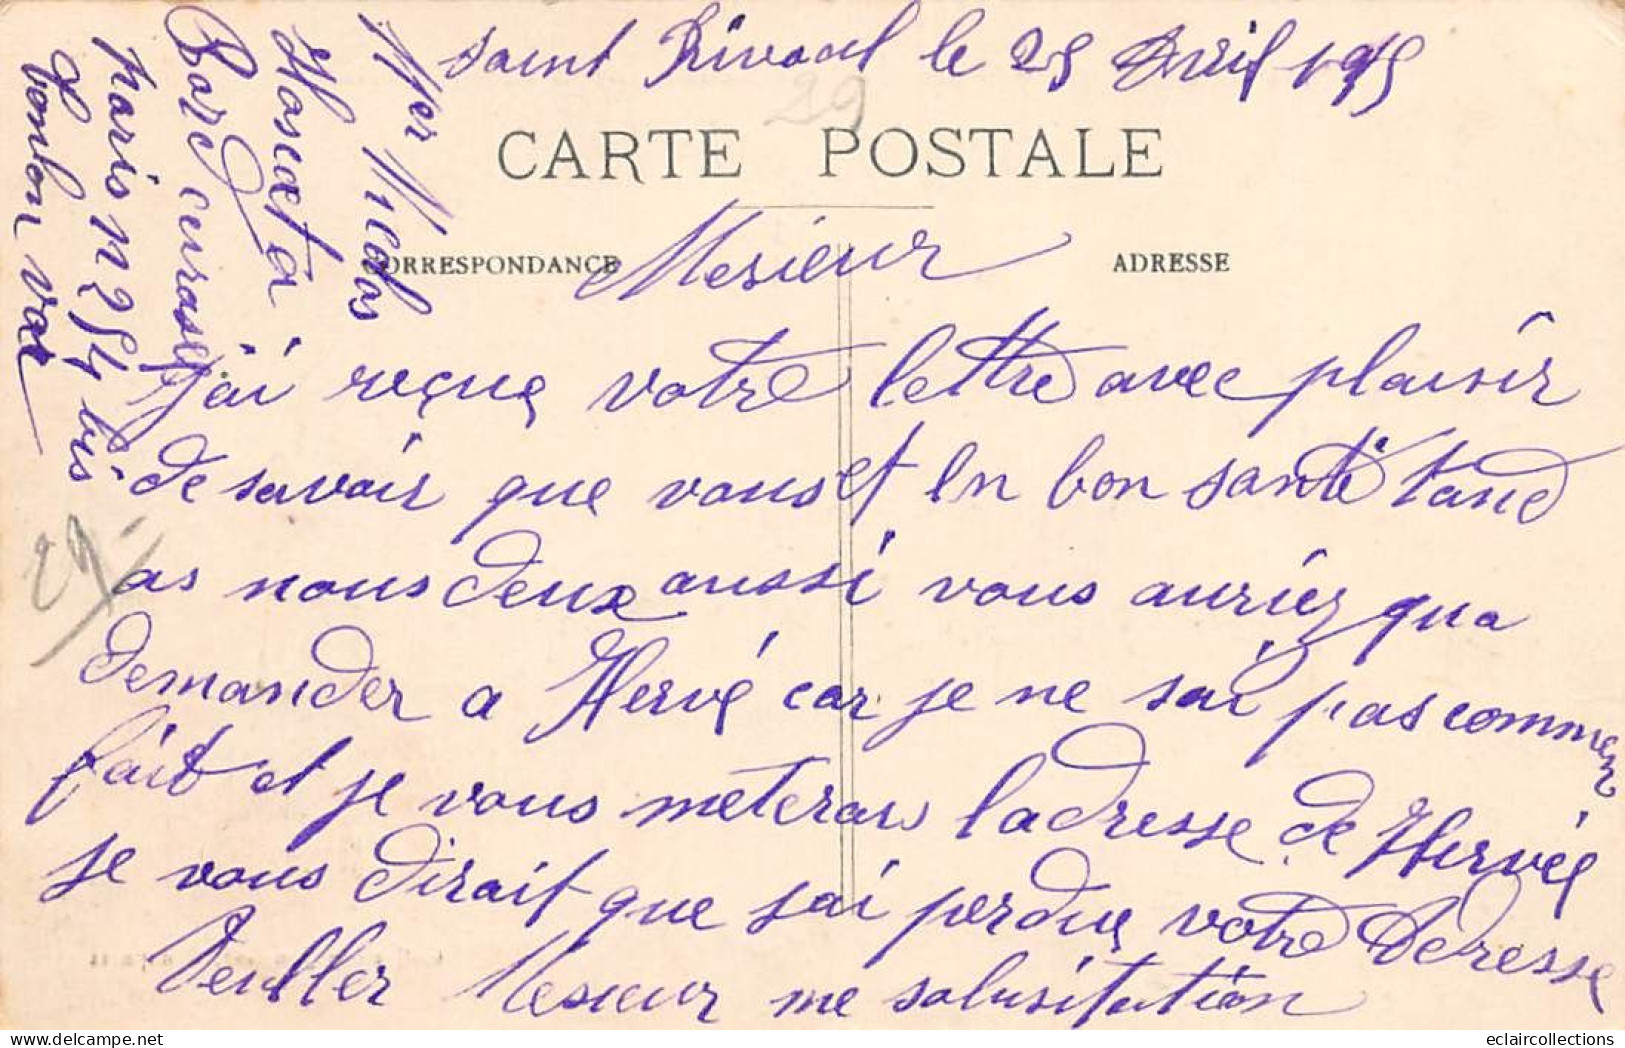 Saint Rivoal le 25 Avril 1915
29
CARTE POSTALE
CORRESPONDANCE
ADRESSE
Mesieur
j'ai reçue votre lettre avec plaisir
de savoir que vous et en bon santé tand
as nous deux aussi vous auriez qua
demander a Hervé car je ne sai pas commen
fait et je vous meteras ladresse de Hervéé
je vous dirait que jai perdue votre Adresse
Veuller Mesieur me salusitation
Mer Nicolas
Hoscat a
Parc curasse
naris n 254 bis
toonlon var
29
eclaircollections